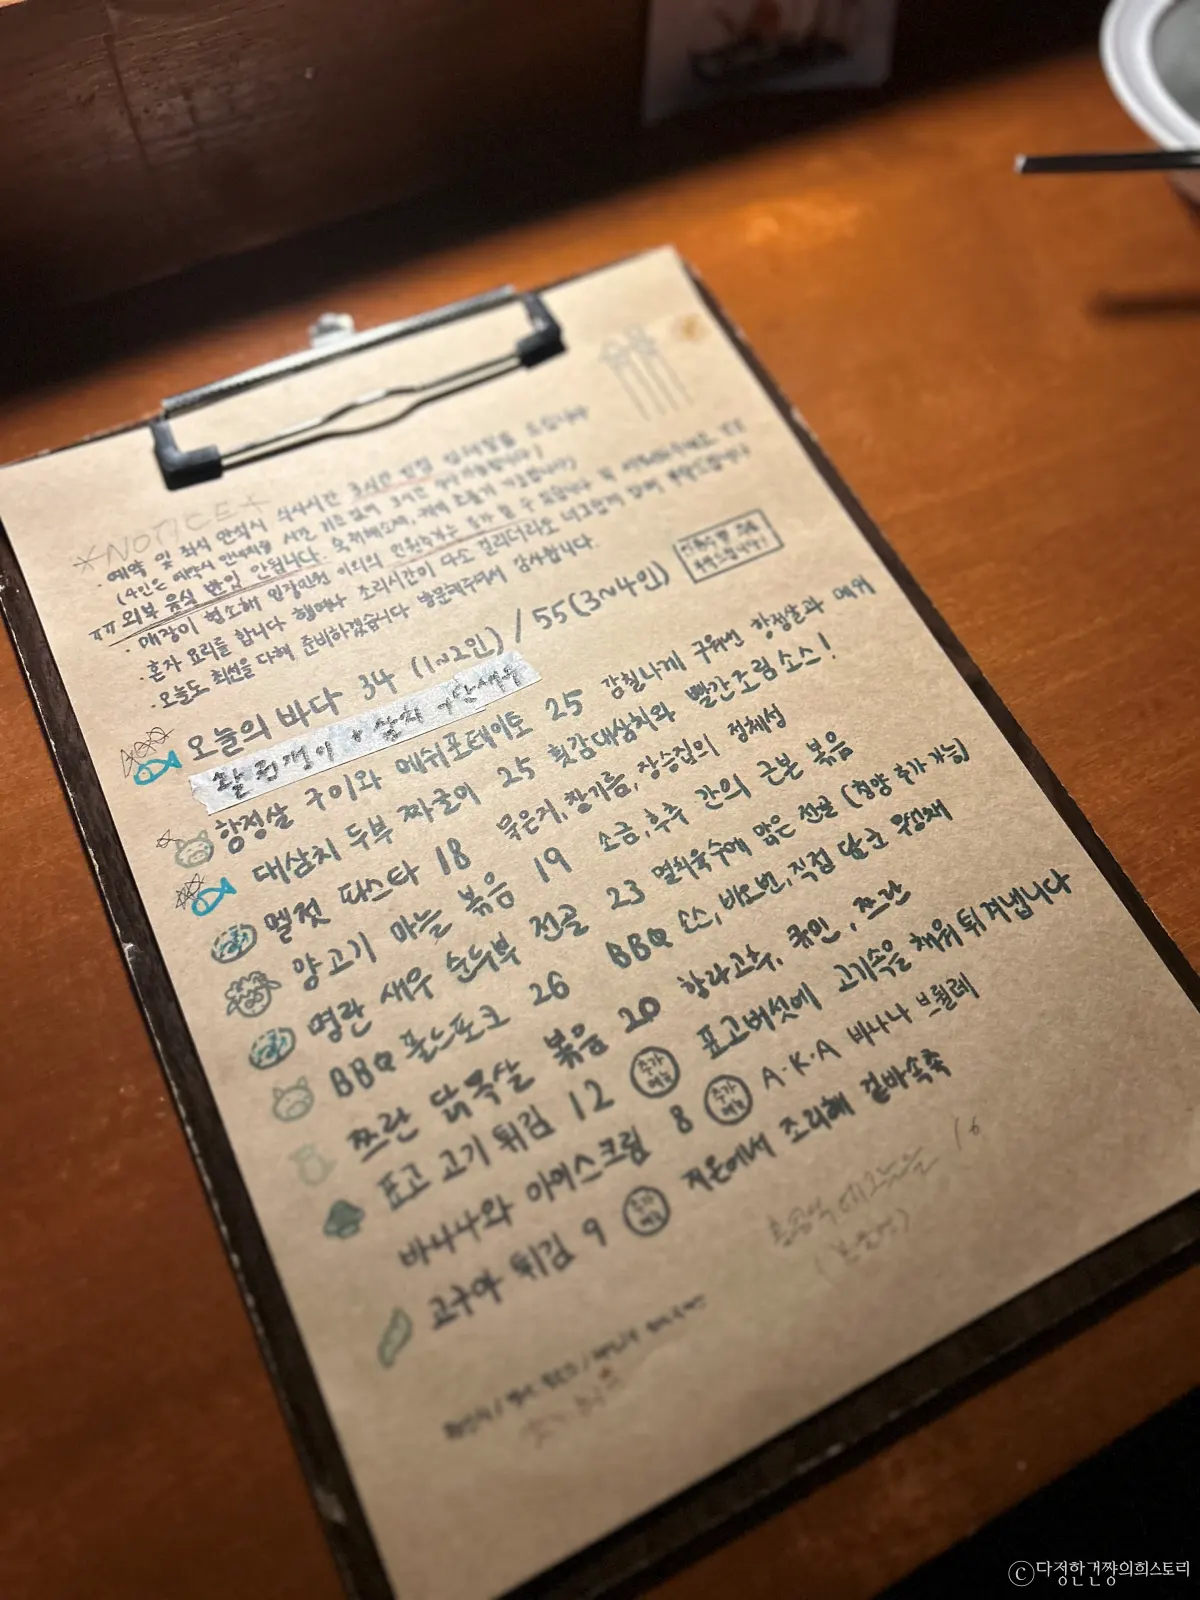 *NOTICE*
· 예약 및 좌석 안석시 식사시간 3시간
(4인은 예약시 시간 기준없이 3시간
외부 음식 반입 안됩니다.
· 매장이 협소해 입장인원 이외의 인원추가는
· 혼자 요리를 합니다 행여나 조리시간이 다소 걸리더라도 너그럽게
· 오늘도 최선을 다해 준비하겠습니다 방문해주셔서 감사합니다.
오늘의 바다 34 (1~2인) / 55 (3~4인)
+ 삼치 + 단새우
항정살 구이와 매쉬포테이토 25 감칠나게 구워낸 항정살과 매커
대삼치 두부 짜글이 25 횟감대삼치와 빨간조림소스!
멜젓 파스타 18 묵은지, 참기름, 장승집의 정체성
양고기 마늘 볶음 19 소금, 후추 간의 근본 볶음
명란 새우 순두부 전골 23 멸치육수에 맑은 전골 (청양 추가 가능)
BBQ 풀드포크 26 BBQ 소스, 버터번, 직접 담근 무생채
쯔란 닭목살 볶음 20 향라고추, 큐민, 쯔란
표고 고기 튀김 12 추가메뉴 표고버섯에 고기속을 채워 튀겨냅니다
바나나와 아이스크림 8 추가메뉴 A·K·A 바나나 브륄레
고구마 튀김 9 추가메뉴 저온에서 조리해 겉바속촉
16
ⓒ다정한건쨩의희스토리